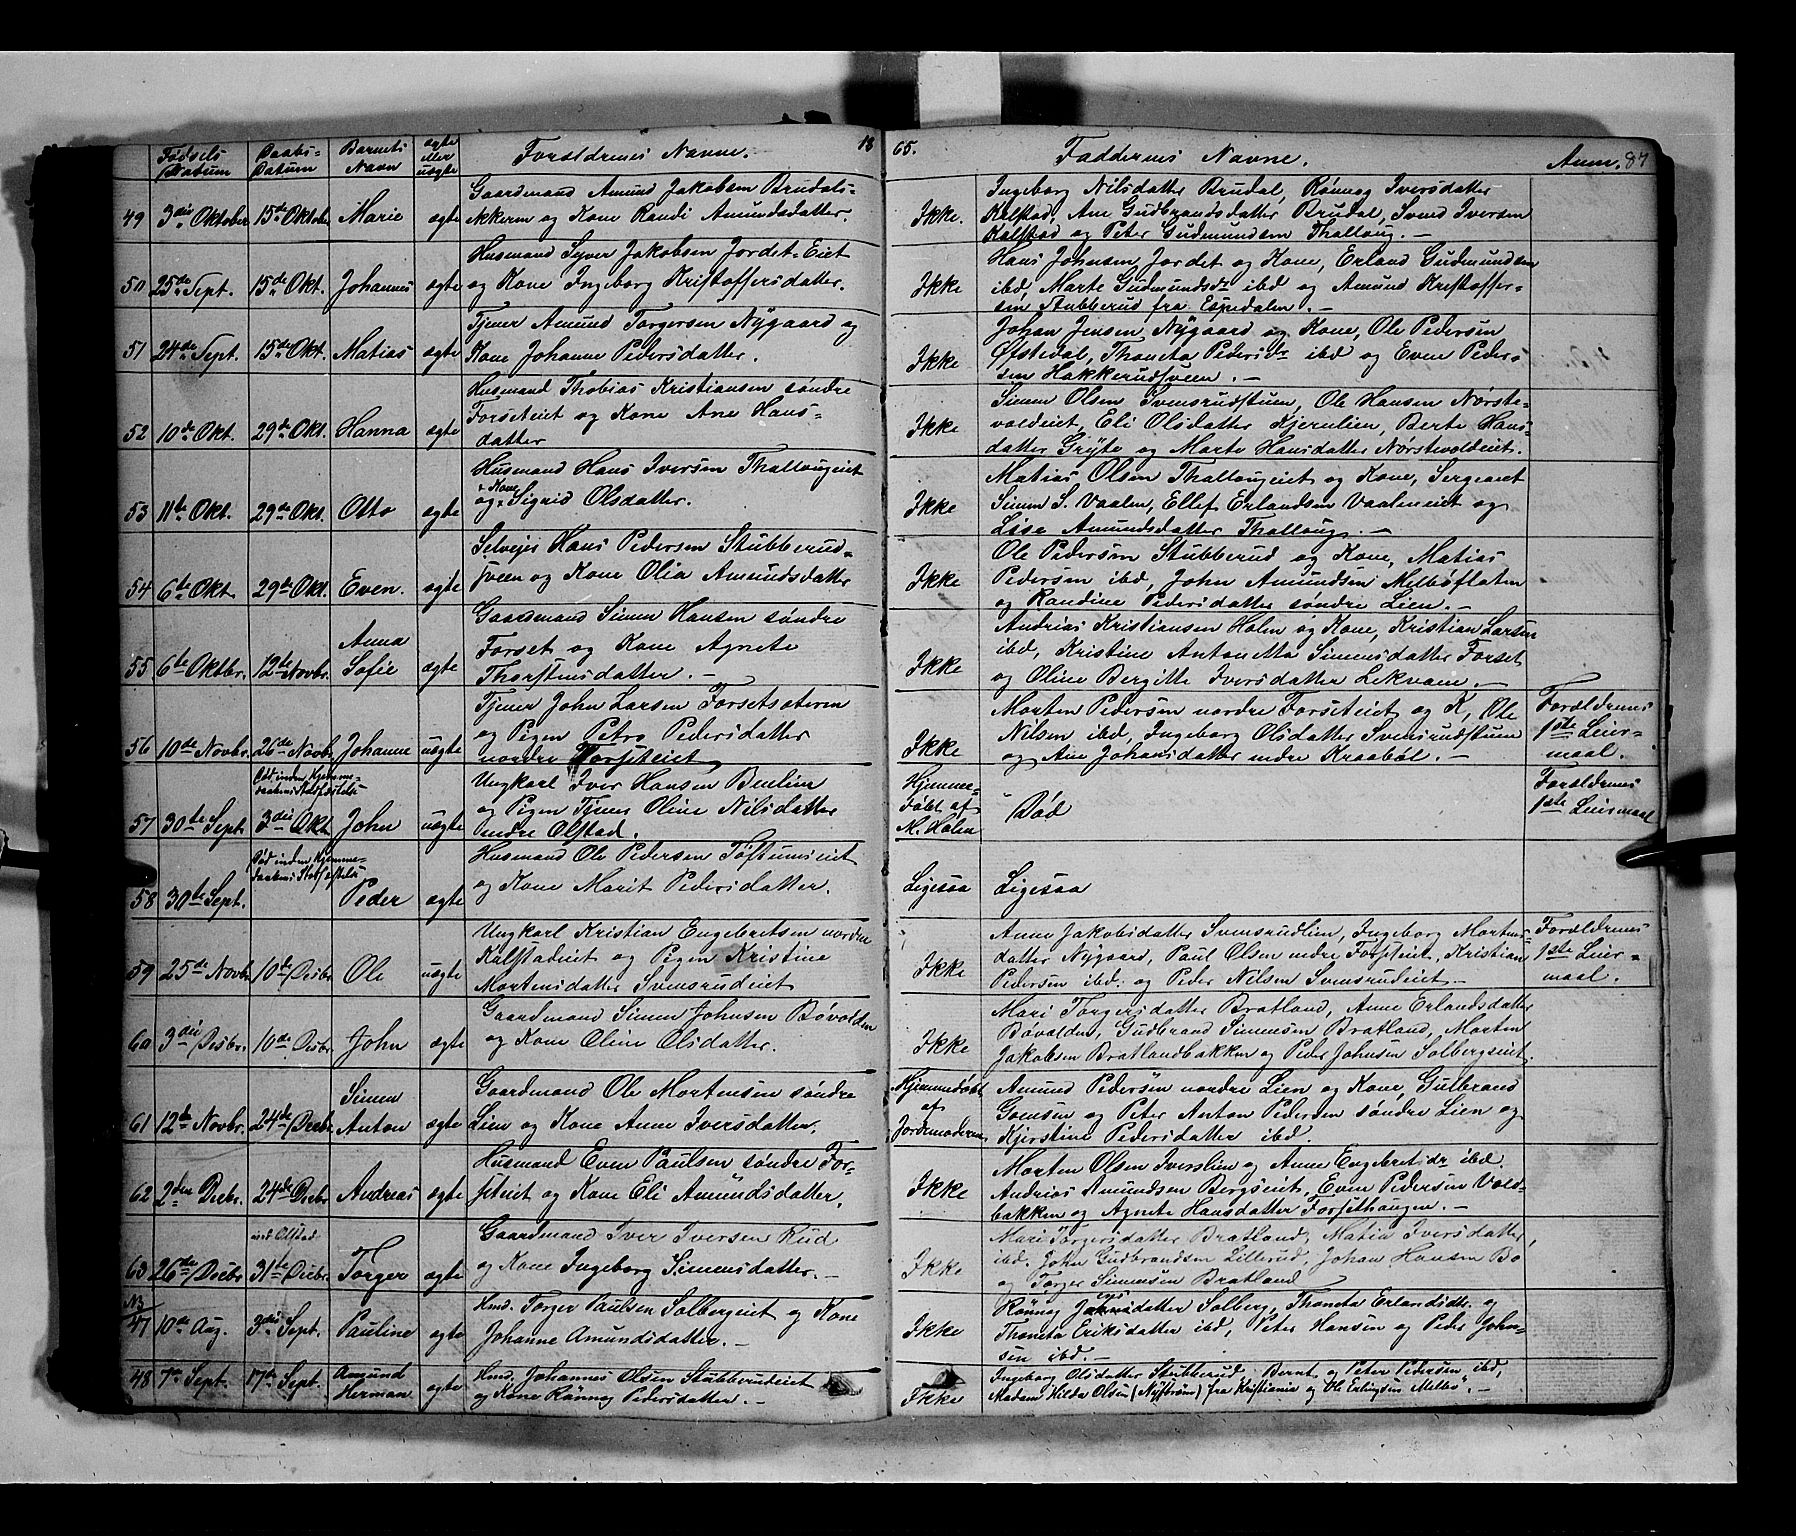 Fødsels Datum | Daabs-Datum | Barnets Navn | ægte eller uægte | Forældrenes Navne. | 18
65. | Faddernes Navne. | Anm. 87
49 | 3die Oktober | 15de Oktober | Marie | ægte | Gaardmand Amund Jakobsen Brudals-
ekkeren og Kone Randi Amundsdatter.
Ikke. | Ingeborg Nilsdatter Brudal, Rønnog Iversdatter
Kalstad, Ane Gudbrandsdatter Brudal, Svend Iversen
Kalstad og Peter Gudmundsen Thalloug. –
50 | 25de Sept. | 15de Okt. | Johannes | ægte | Husmand Syver Jakobsen Jordet-Eiet
og Kone Ingeborg Kristoffersdatter.
Ikke | Hans Johnsen Jordet og Kone, Erland Gudmundsen
ibd, Marte Gudmundsdr ibd og Amund Kristoffer-
sen Stubberud fra Espedalen. –
51 | 24de Sept. | 15de Okt. | Matias | ægte | Tjener Amund Torgersen Nygaard og
Kone Johanne Pedersdatter.
Ikke | Johan Jensen Nygaard og Kone, Ole Pedersen
Øfstedal, Thoneta Pedersdr ibd og Even Peder-
sen Hakkerudsveen. –
52 | 10de Okt. | 29de Okt. | Hanna | ægte | Husmand Thobias Kristiansen søndre
Forseteiet og Kone Ane Hans-
datter
Ikke | Simen Olsen Svensrudstuen, Ole Hansen Nørste-
voldeiet, Eli Olsdatter Kjernlien, Berte Hans-
datter Grÿte og Marte Hansdatter Nørstevoldeiet.
53 | 11te Okt. | 29de Okt. | Otto | ægte | Husmand Hans Iversen Thallougeiet
og Kone Sigrid Olsdatter.
Ikke | Matias Olsen Thallougeiet og Kone, Sergeant
Simen S. Vaalen, Ellef Erlandsen Vaaleneiet og
Lise Amundsdatter Thalloug. –
54 | 6te Okt | 29de Okt. | Even. | ægte | Selvejer Hans Pedersen Stubberud-
sveen og Kone Olia Amundsdatter
Ikke | Ole Pedersen Stubberud og Kone, Matias
Pedersen ibd, John Amundsen Melbøflaten
og Randine Pedersdatter søndre Lien. –
55 | 6te Oktbr. | 12te Novbr. | Anna Sofie | ægte | Gaardmand Simen Hansen søndre
Forset og Kone Agnete
Thorstensdatter. –
Ikke | Andrias Kristiansen Holm og Kone, Kristian Larsen
ibd, Kristine Antonetta Simensdatter Forset
og Oline Bergitte Iversdatter Lekvam. –
56 | 10de Novbr. | 26de Novbr. | Johanne | uægte | Tjener John Larsen Forsetsæteren
og Pigen Petra Pedersdatter
nordre Forseteiet
Ikke | Morten Pedersen nordre Forseteiet og K, Ole
Nilsen ibd, Ingeborg Olsdatter Svensrudstuen
og Ane Johansdatter nedre Kraabøl. – | Forældrenes
1ste Leier-
maal.
57 | 30te Sept. | Død inden Hjemme-
daabens Stadfæstelse
3die Okt | John | uægte | Ungkarl Iver Hansen Benlien
og Pigen Tjener Oline Nilsdatter
nedre Olstad.
Hjemme-
døbt af
M. Holen | Død | Forældrenes
1ste Leiermaal
58 | 30te Sept. | Død inden Hjemme-
daabens Stadfæstelse | Peder | ægte | Husmand Ole Pedersen Tøftumseiet
og Kone Marit Pedersdatter.
Ligesaa | Ligesaa
59 | 25de Novbr | 10de Desbr. | Ole | uægte | Ungkarl Kristian Engebretsen nordre
Kalstadeiet og Pigen Kristine
Mortensdatter Svensrudeiet
Ikke | Anne Jakobsdatter Svensrudlien, Ingeborg Mortens-
datter Nygaard, Paul Olsen nedre Forseteiet, Kristian
Pedersen ibd. og Peder Nilsen Svensrudeiet – | Forældrenes
1ste Leier-
maal.
60 | 3die Desbr. | 10de Desbr. | John | ægte | Gaardmand Simen Johnsen Bøvolden
og Kone Oline Olsdatter.
Ikke | Mari Torgersdatter Bratland, Anne Erlandsdatter
Bøvolden, Gudbrand Simensen Bratland, Morten
Jakobsen Bratlandbakken og Peder Johnsen Solbergseiet.
61 | 12te Novbr. | 24de Decbr. | Simen Anton | ægte | Gaardmand Ole Mortensen søndre
Lien og Kone Anne Iversdatter.
Hjemmedøbt
af
Jordemoderen | Amund Pedersen nordre Lien og Kone, Gulbrand
Gomsen og Peter Anton Pedersen søndre Lien og
Kjerstine Pedersdatter ibd.
62 | 2den Decbr. | 24de Decbr | Andreas | ægte | Husmand Even Paulsen søndre For-
seteiet og Kone Eli Amundsdatter.
Ikke | Morten Olsen Iverslien og Anne Engebretsdr ibd.
Andrias Amundsen Bergseiet, Even Pedersen Vold-
bakken og Agnete Hansdatter Forsethaugen. –
63 | 26de Decbr. | ved Olstad
31te Decbr. | Torger | ægte | Gaardmand Iver Iversen Rud
og Kone Ingeborg Simensdatter. –
Ikke | Mari Torgersdatter Bratland, Matia Iversdatter,
ibd. John Gudbrandsen Lillerud, Johan Hansen Bø
og Torger Simensen Bratland
NB
47 | 10de Aug. | 3die Sept. | Pauline | ægte | Hmd. Torger Paulsen Solbergeiet og Kone
Johanne Amundsdatter. –
Ikke | Rønnog datter Solberg, Thoneta Erlandsdtr. og
Thoneta Eriksdatter ibd, Peter Hansen og Peder John-
sen ibd. –
48 | 7de Sept. | 17de Sept. | Amund Herman | ægte | Hmd. Johannes Olsen Stubberudeiet
og Kone Rønnog Pedersdatter. –
Ikke | Ingeborg Olsdatter Stubberud, Bernt og Peter Pedersen ibd,
Madam Hilda Olsen (Nÿstrøm) fra Kristiania og Ole Erlingsen Melbø. –